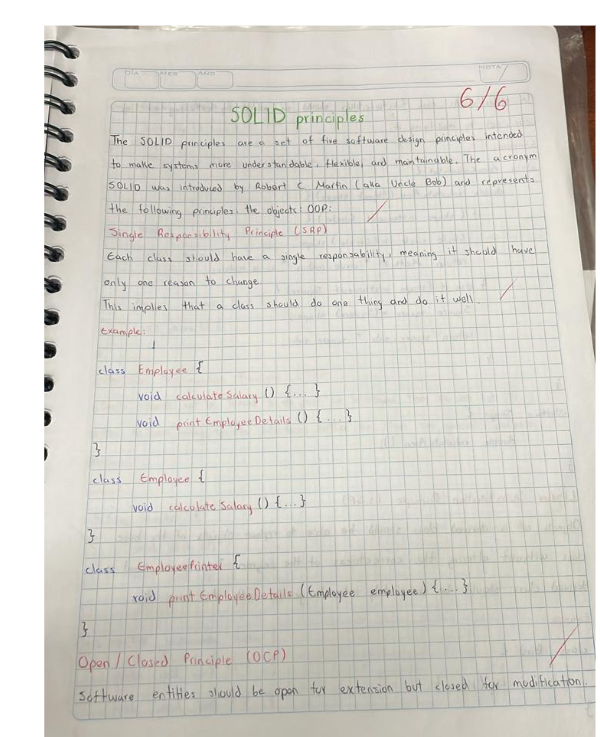 DIA MES AÑO
NOTA
6/6
SOLID principles
The SOLID principles are a set of five software design principles intended
to make systems more understandable, flexible, and maintainable. The acronym
SOLID was introduced by Robert C Martin (aka Uncle Bob) and represents
the following principles. the objects: OOP:
Single Responsibility Principle (SRP)
Each class should have a single responsability, meaning it should have
only one reason to change
This implies that a class should do one thing and do it well.
Example:
class Employee {
void calculateSalary () {...}
void printEmployeeDetails () {...}
}
class Employee {
void calculateSalary () {...}
}
class EmployeePrinter {
void printEmployeeDetails (Employee employee) {...}
}
Open / Closed Principle (OCP)
Software entities should be open for extension but closed for modification.